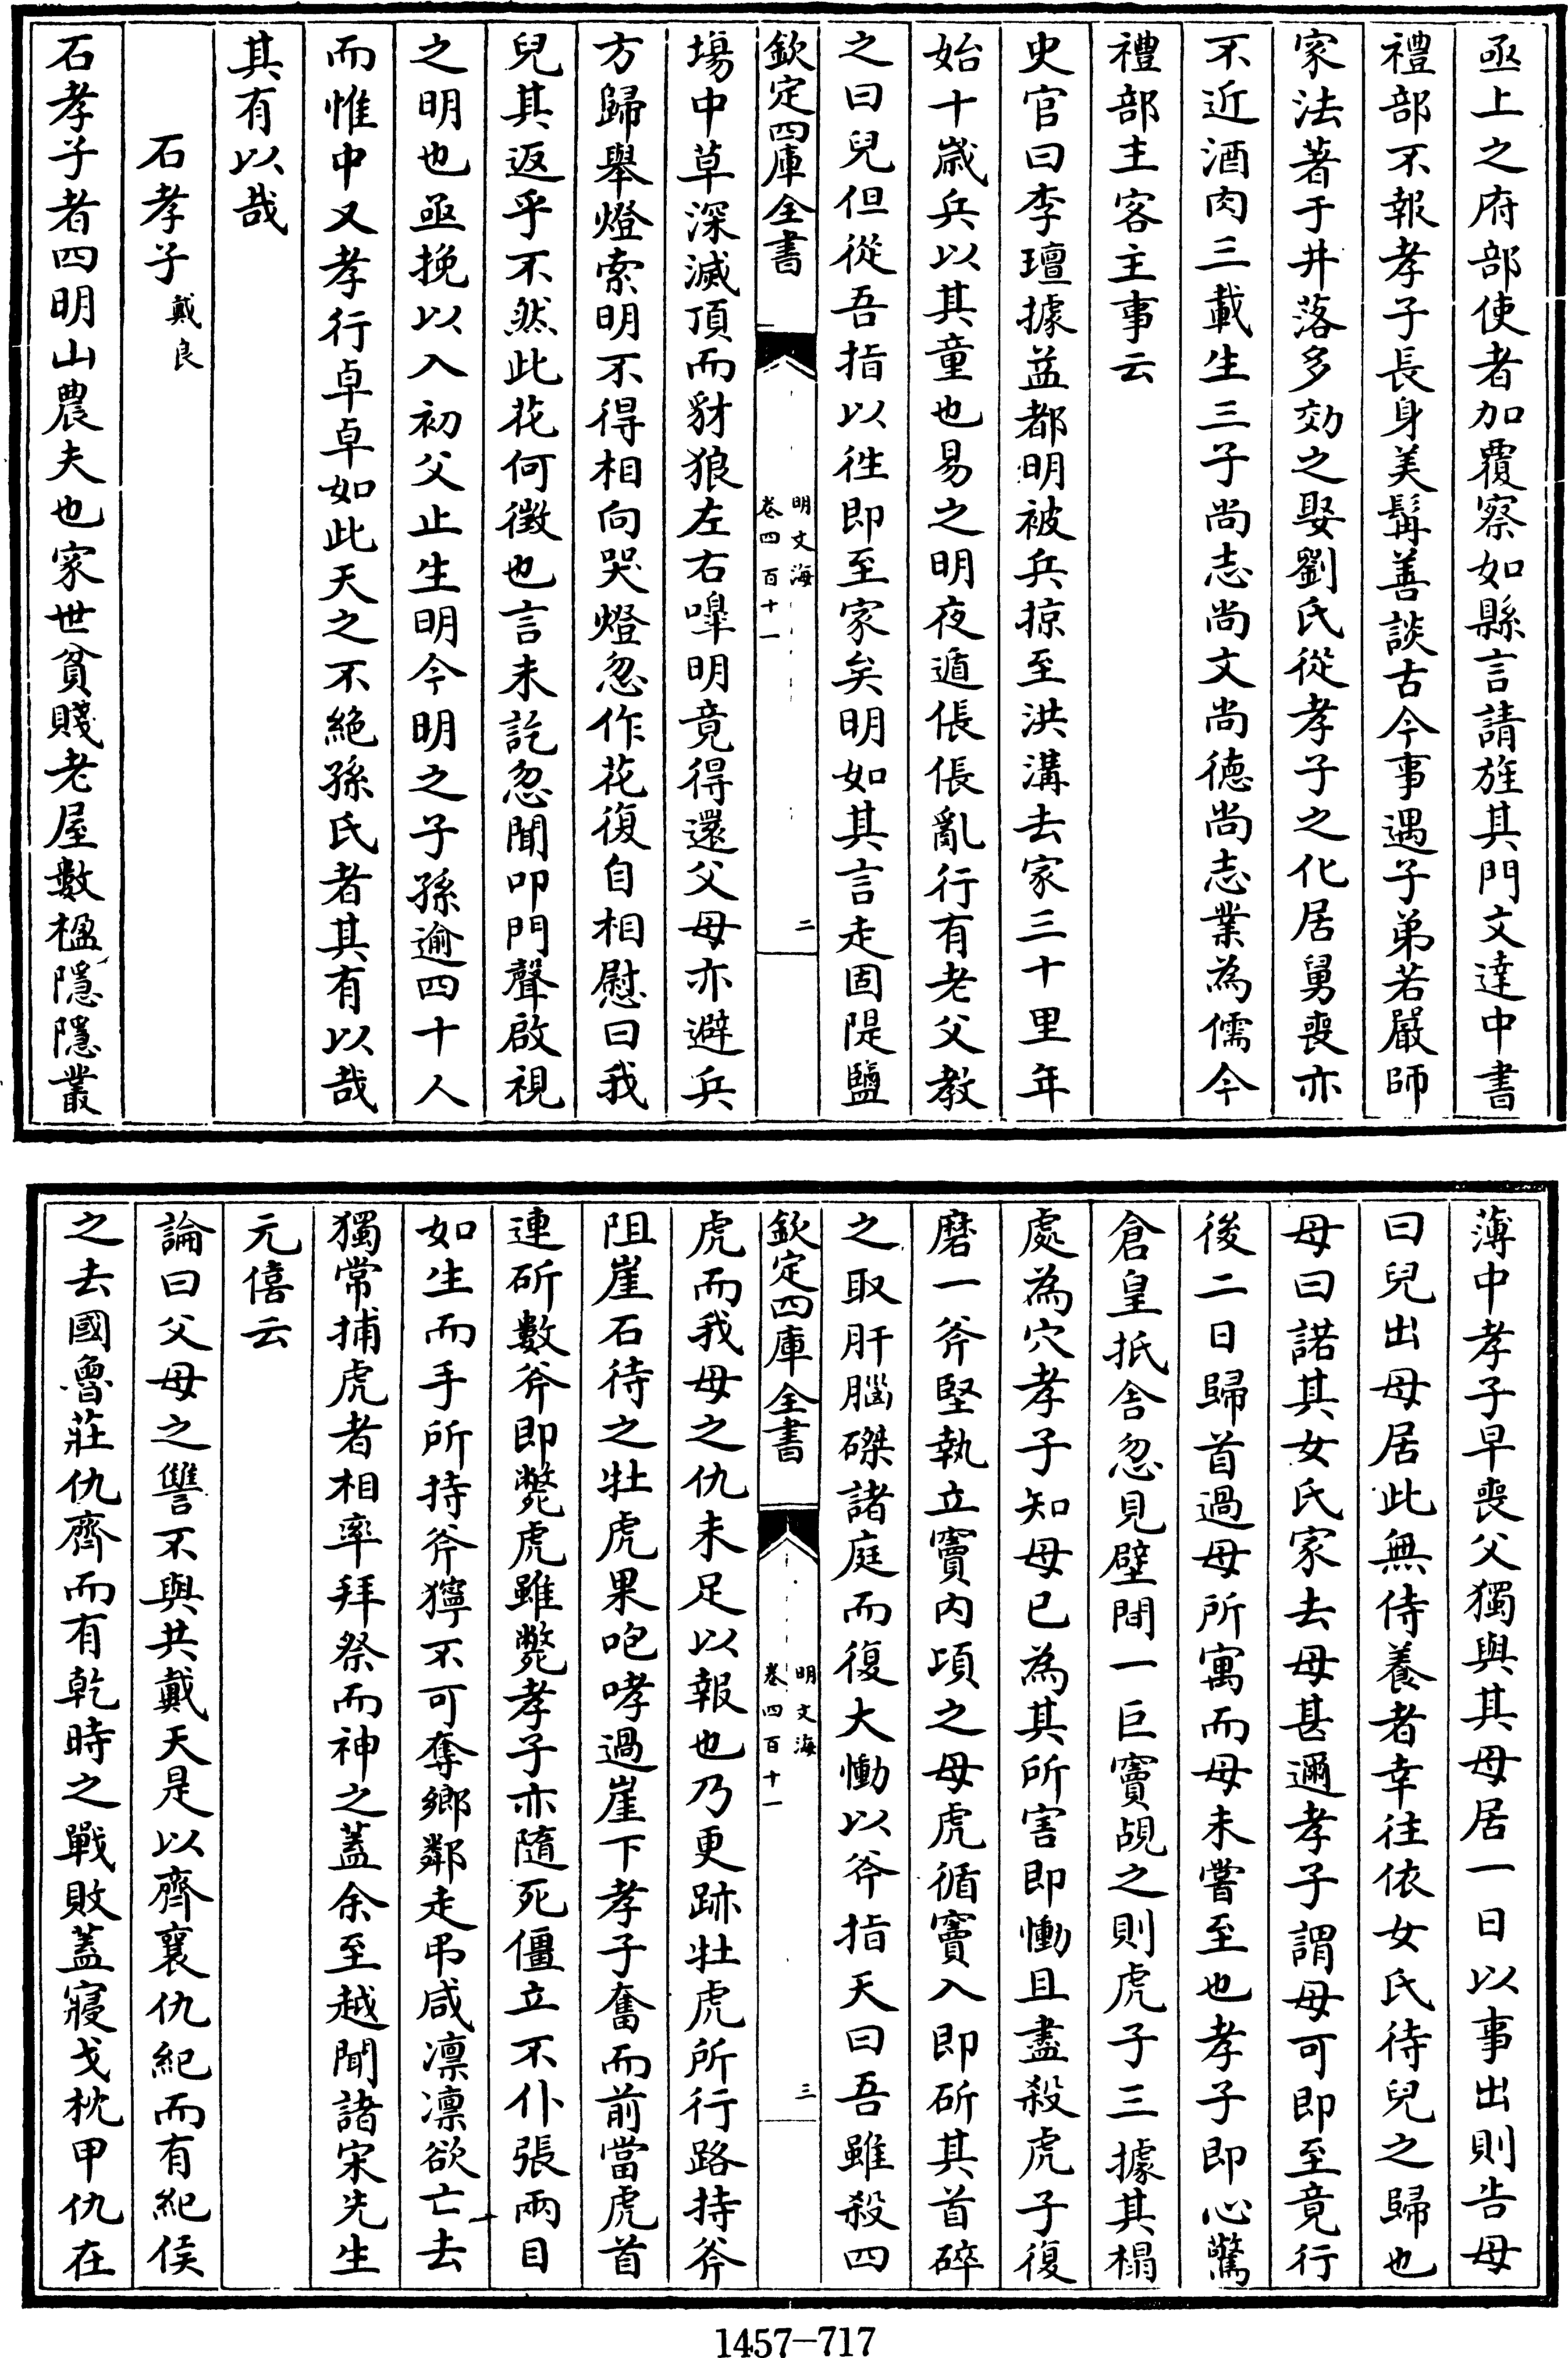 亟上之府部使者加覆察如縣言請旌其門文達中書
禮部不報孝子長身美髯善談古今事遇子弟若嚴師
家法著于井落多効之娶劉氏從孝子之化居舅喪亦
不近酒肉三載生三子尚志尚文尚徳尚志業為儒今
禮部主客主事云
史官曰李璮據益都明被兵掠至洪溝去家三十里年
始十歲兵以其童也易之明夜遁倀倀亂行有老父教
之曰兒但從吾指以徃即至家矣明如其言走固隄鹽
欽定四庫全書
明文海
卷四百十一
二
塲中草深滅頂而豺狼左右嘷明竟得還父母亦避兵
方歸舉燈索明不得相向哭燈忽作花復自相慰曰我
兒其返乎不然此花何徵也言未訖忽聞叩門聲啟視
之明也亟挽以入初父止生明今明之子孫逾四十人
而惟中又孝行卓卓如此天之不絶孫氏者其有以哉
其有以哉
石孝子
戴良
石孝子者四明山農夫也家世貧賤老屋數楹隱隱叢
薄中孝子早喪父獨與其母居一日以事出則告母
曰兒出母居此無侍養者幸往依女氏待兒之歸也
母曰諾其女氏家去母甚邇孝子謂母可即至竟行
後二日歸首過母所寓而母未嘗至也孝子即心驚
倉皇抵舍忽見壁間一巨竇覘之則虎子三據其榻
處為穴孝子知母已為其所害即慟且盡殺虎子復
磨一斧堅執立竇内頃之母虎循竇入即斫其首碎
之取肝腦磔諸庭而復大慟以斧指天曰吾雖殺四
欽定四庫全書
明文海
卷四百十一
三
虎而我母之仇未足以報也乃更跡牡虎所行路持斧
阻崖石待之牡虎果咆哮過崖下孝子奮而前當虎首
連斫數斧即斃虎雖斃孝子亦隨死僵立不仆張兩目
如生而手所持斧獰不可奪鄉鄰走弔咸凛凛欲亡去
獨常捕虎者相率拜祭而神之蓋余至越聞諸宋先生
元僖云
論曰父母之讐不與共戴天是以齊襄仇紀而有紀侯
之去國魯莊仇齊而有乾時之戰敗蓋寢戈枕甲仇在
1457-717